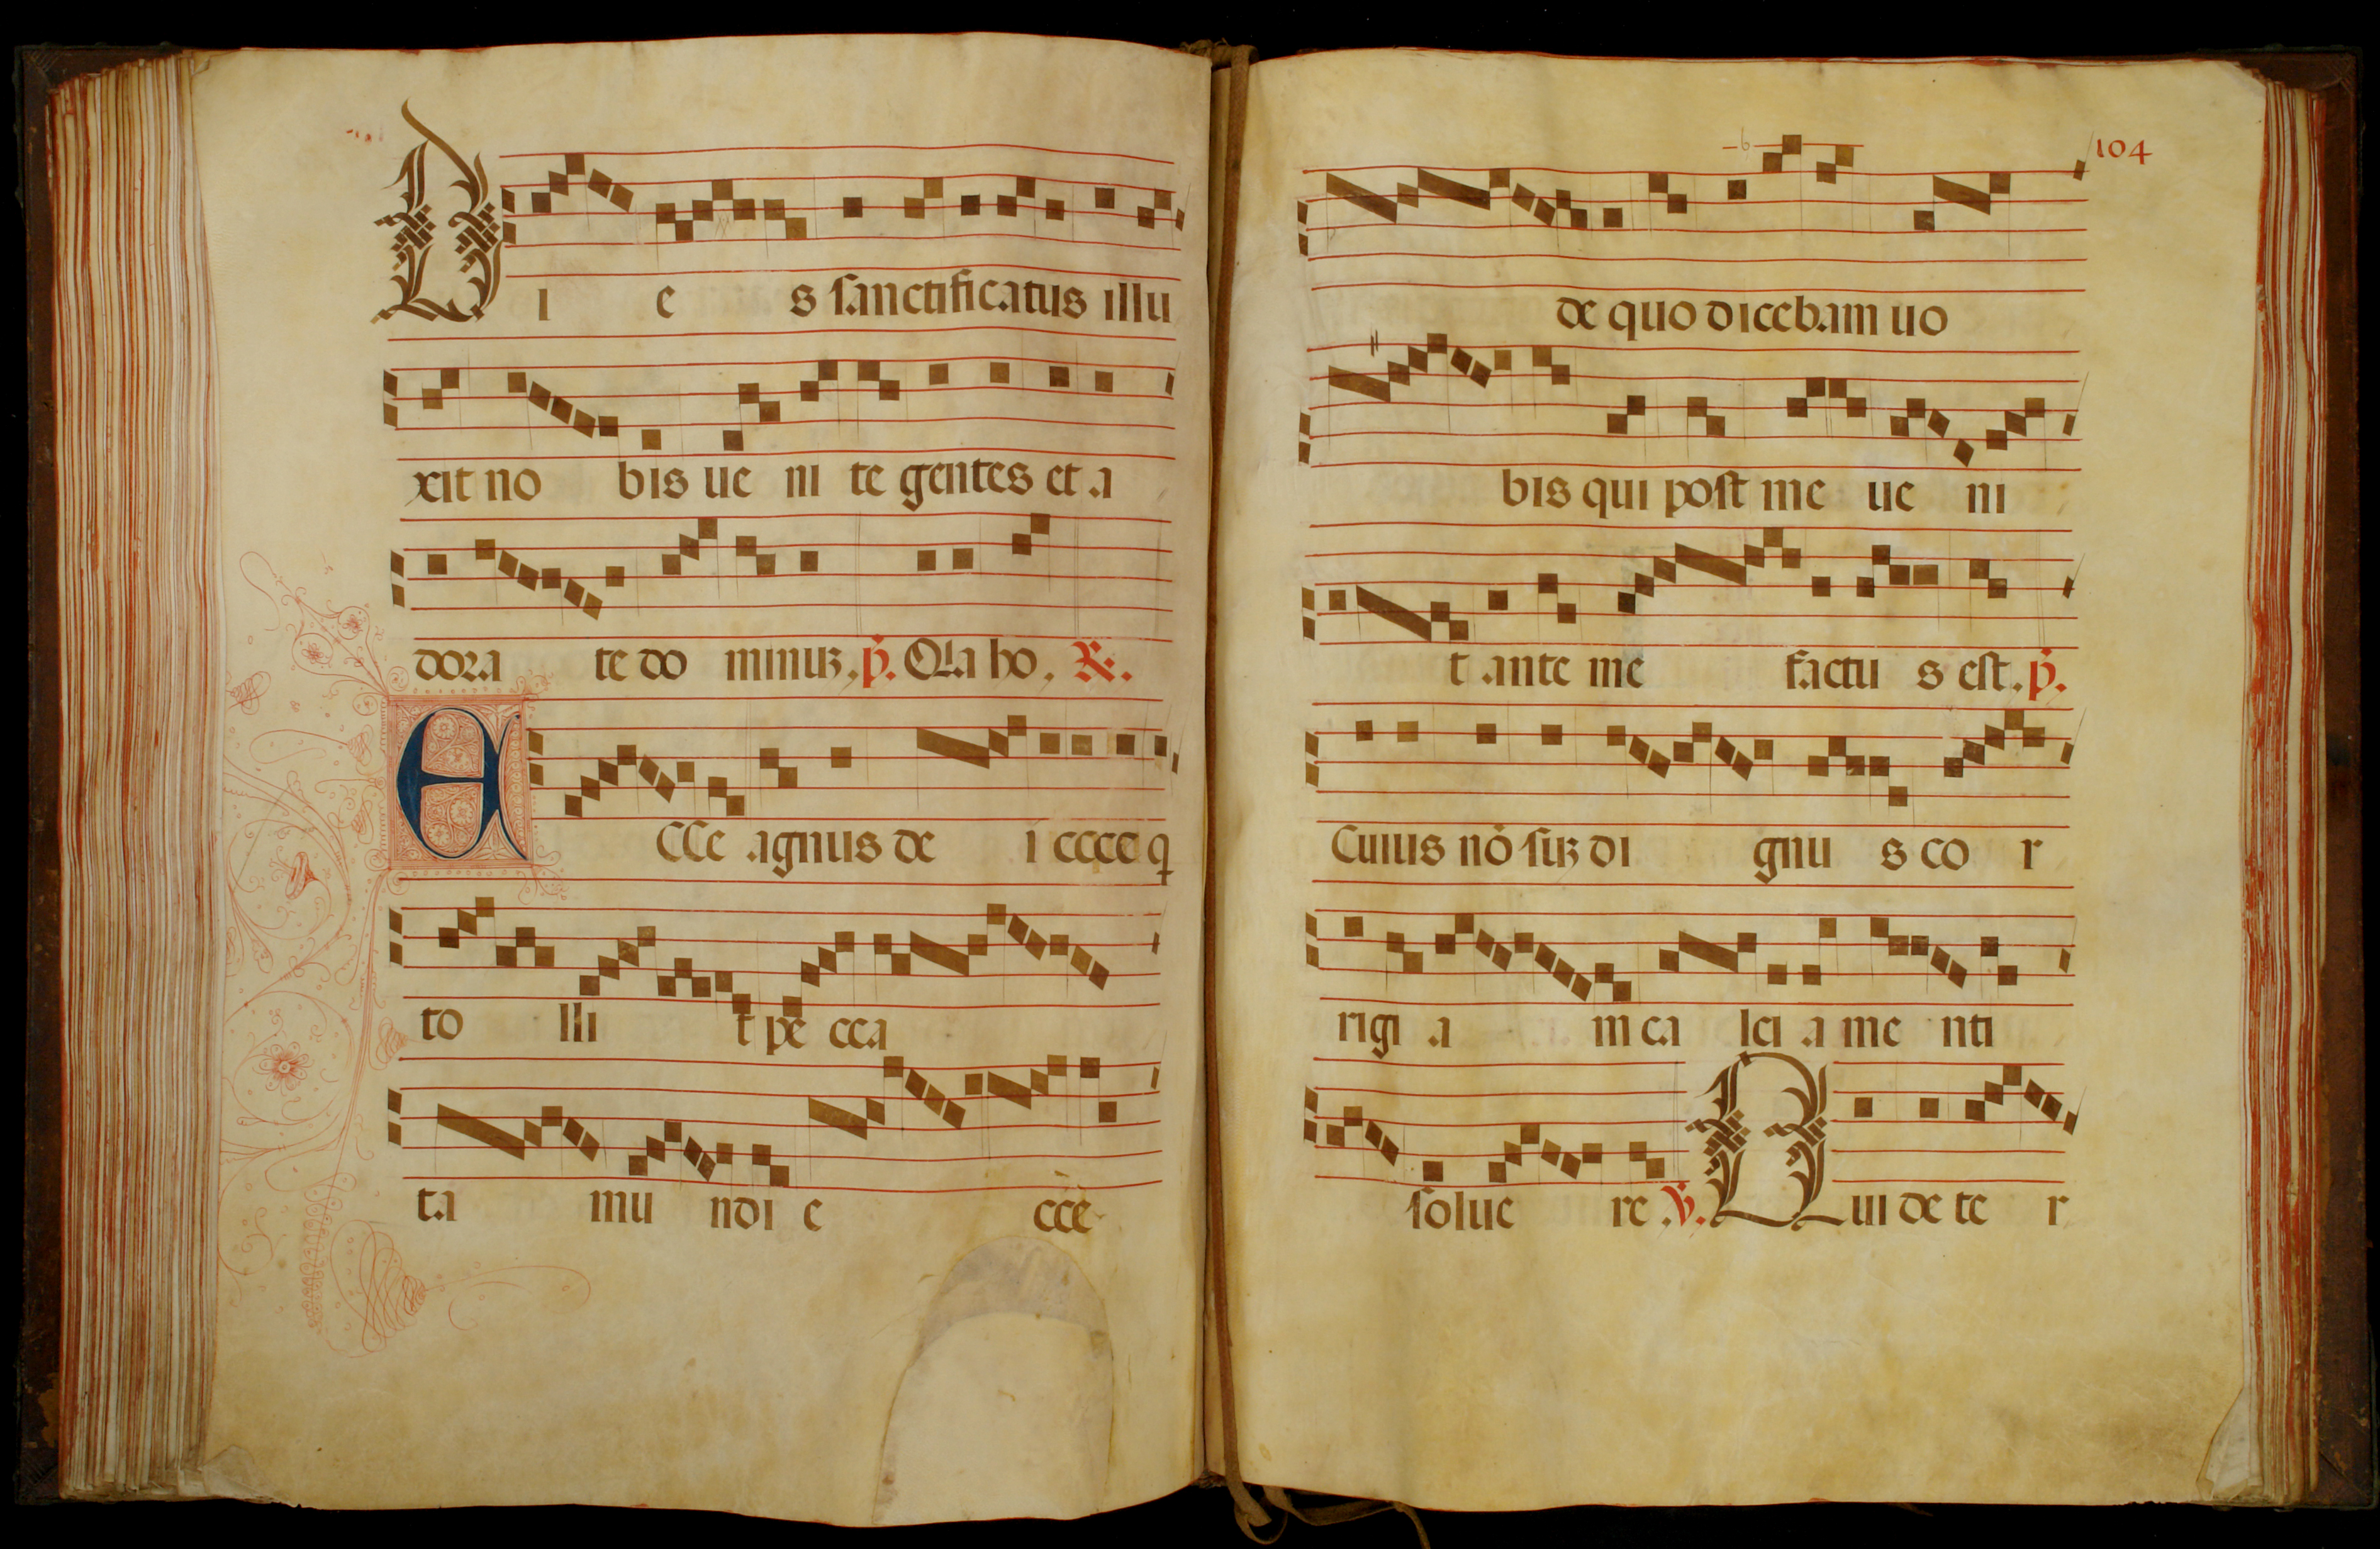 DI e s sanctificatus illu
xit no bis ue ni te gentes et a
dora te do minuȝ. p̃. Quia ho. ℟.
ECCe agnus de i ecce q
to lli t pe cca
ta mu ndi e cce
104
de quo dicebam uo
bis qui post me ue ni
t ante me factu s est. p̃.
Cuius nō suȝ di gnu s co r
rigi a m ca lci a me nti
solue re ℣. Qui de te r